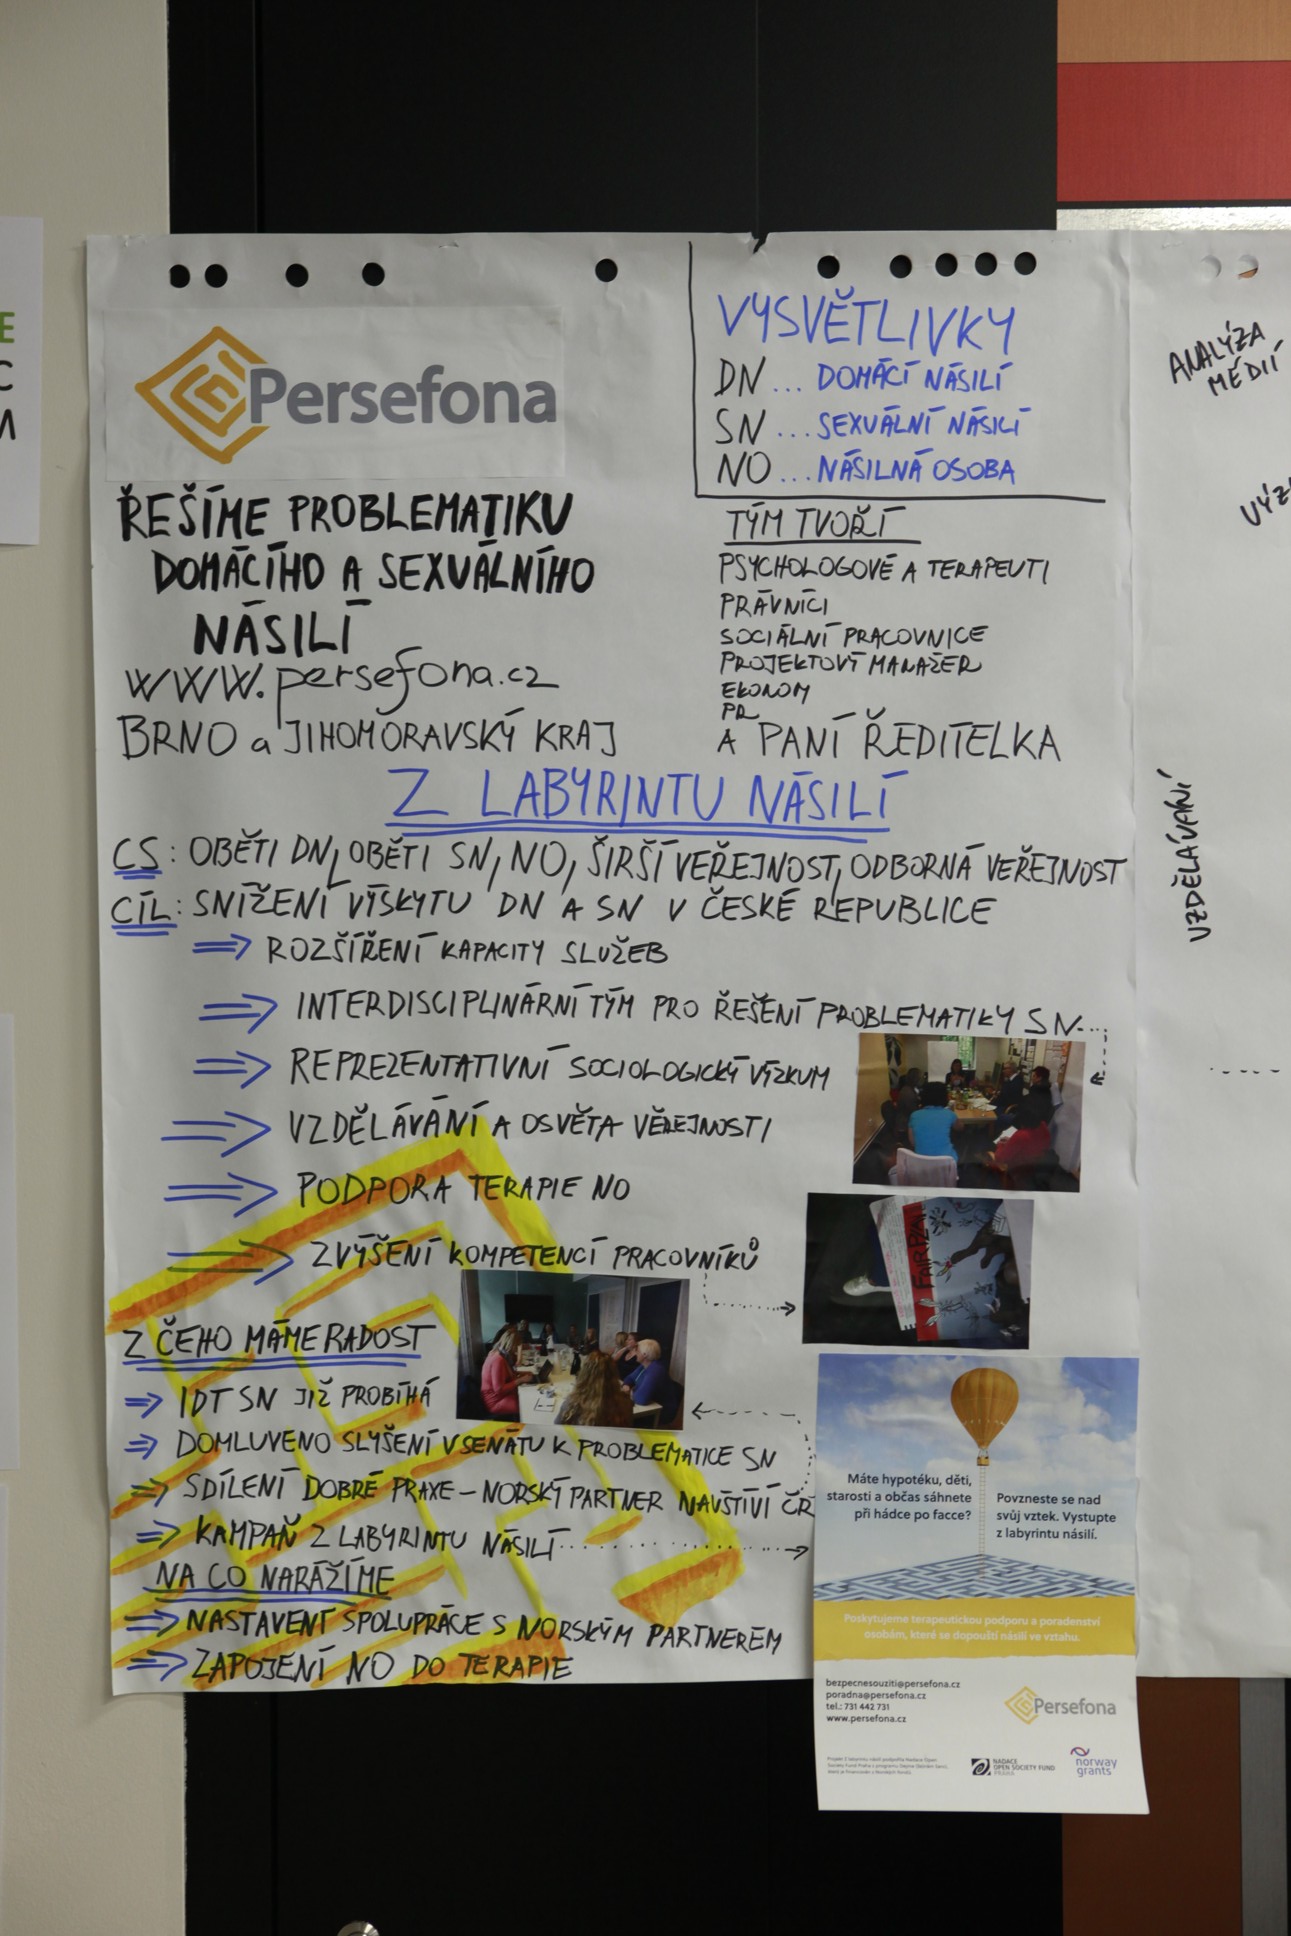 E
C
Persefona
ŘEŠÍME PROBLEMATIKU
DOMÁCÍHO A SEXUÁLNÍHO
NÁSILÍ
www.persefona.cz
BRNO a JIHOMORAVSKÝ KRAJ
VYSVĚTLIVKY
DN ... DOMÁCÍ NÁSILÍ
SN ... SEXUÁLNÍ NÁSILÍ
NO ... NÁSILNÁ OSOBA
TÝM TVOŘÍ
PSYCHOLOGOVÉ A TERAPEUTI
PRÁVNÍCI
SOCIÁLNÍ PRACOVNICE
PROJEKTOVÝ MANAŽER
EKONOM
PR
A PANÍ ŘEDITELKA
Z LABYRINTU NÁSILÍ
CS: OBĚTI DN, OBĚTI SN, NO, ŠIRŠÍ VEŘEJNOST, ODBORNÁ VEŘEJNOST
CÍL: SNÍŽENÍ VÝSKYTU DN A SN V ČESKÉ REPUBLICE
⇒ ROZŠÍŘENÍ KAPACITY SLUŽEB
⇒ INTERDISCIPLINÁRNÍ TÝM PRO ŘEŠENÍ PROBLEMATIKY SN
⇒ REPREZENTATIVNÍ SOCIOLOGICKÝ VÝZKUM
⇒ VZDĚLÁVÁNÍ A OSVĚTA VEŘEJNOSTI
⇒ PODPORA TERAPIE NO
⇒ ZVÝŠENÍ KOMPETENCÍ PRACOVNÍKŮ
Z ČEHO MÁME RADOST
⇒ IDT SN JIŽ PROBÍHÁ
⇒ DOMLUVENO SLYŠENÍ V SENÁTU K PROBLEMATICE SN
⇒ SDÍLENÍ DOBRÉ PRAXE – NORSKÝ PARTNER NAVŠTÍVÍ ČR
⇒ KAMPAŇ Z LABYRINTU NÁSILÍ
NA CO NARÁŽÍME
⇒ NASTAVENÍ SPOLUPRÁCE S NORSKÝM PARTNEREM
⇒ ZAPOJENÍ NO DO TERAPIE
FAIR
Máte hypotéku, děti,
starosti a občas sáhnete
při hádce po facce?
Povzneste se nad
svůj vztek. Vystupte
z labyrintu násilí.
Poskytujeme terapeutickou podporu a poradenství
osobám, které se dopouští násilí ve vztahu.
bezpecnesouziti@persefona.cz
poradna@persefona.cz
tel.: 731 442 731
www.persefona.cz
Persefona
Projekt Z labyrintu násilí podpořila Nadace Open
Society Fund Praha z programu Dejme (že)nám šanci,
který je financován z Norských fondů.
NADACE
OPEN SOCIETY FUND
PRAHA
norway
grants
ANALÝZA
MÉDIÍ
VZDĚLÁVÁNÍ